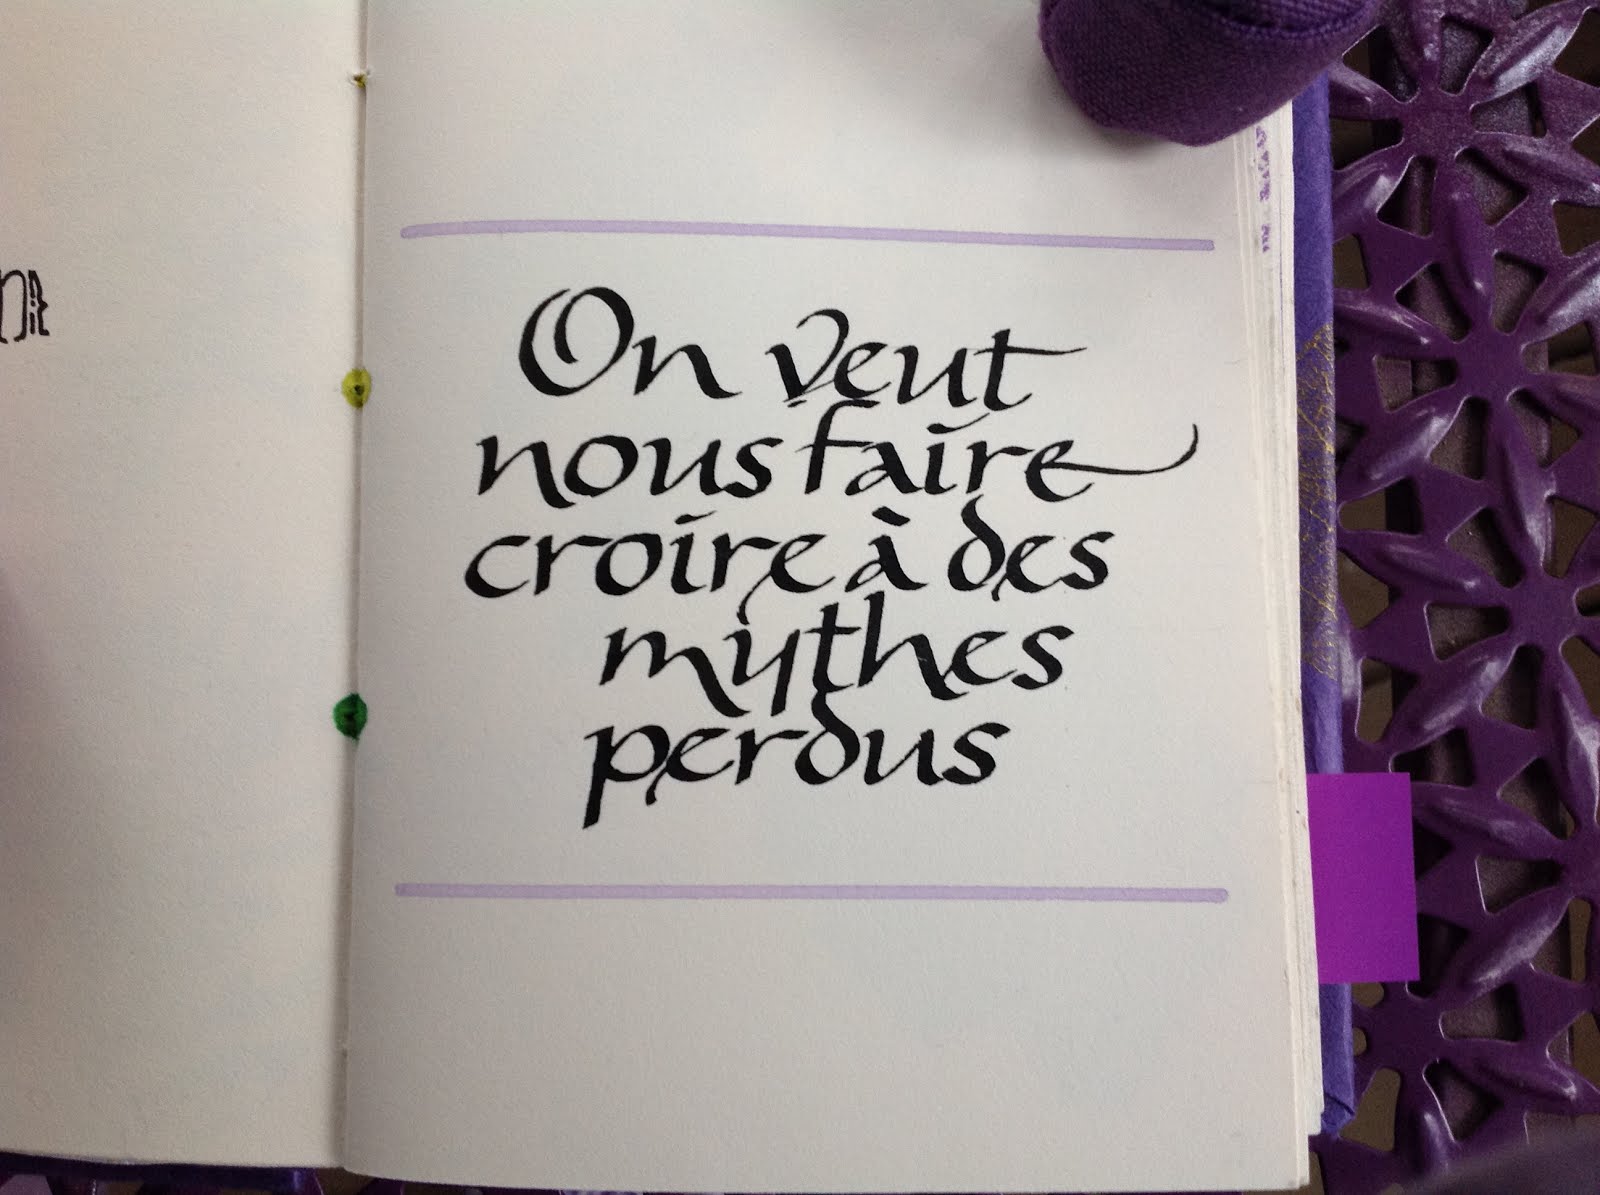 On veut
nous faire
croire à des
mythes
perdus